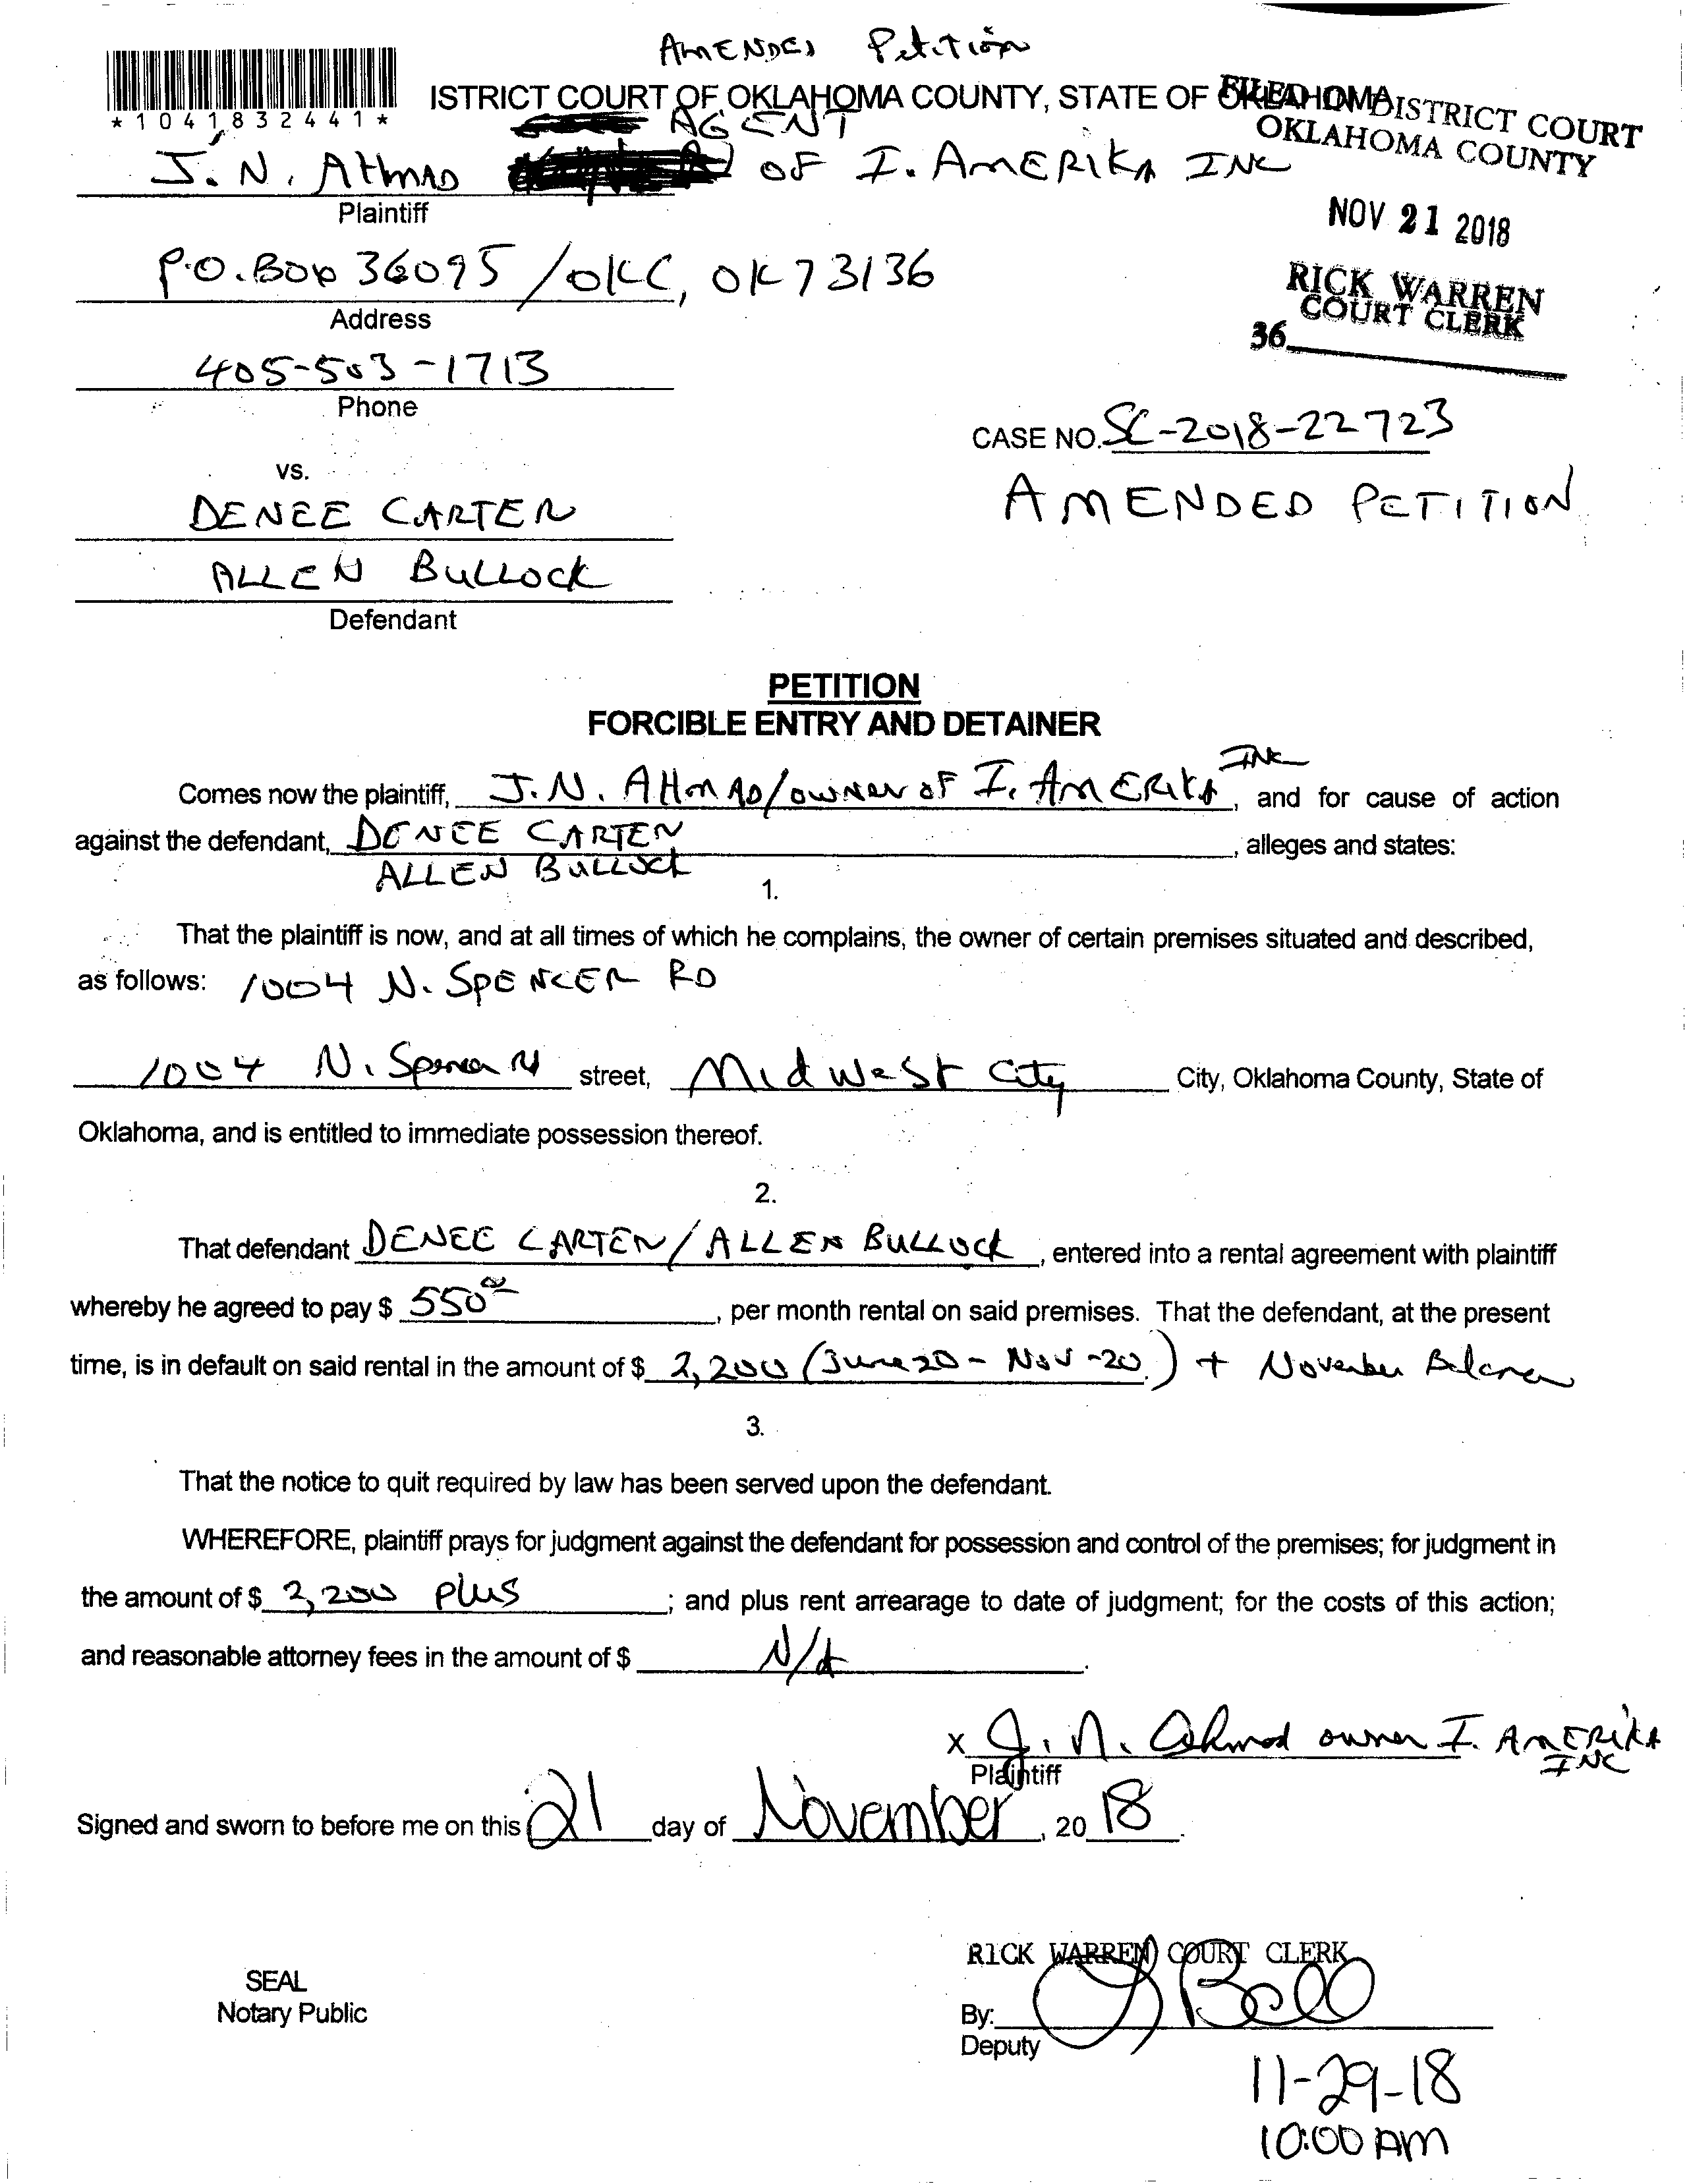 AMENDED Petition
*1041832441*
ISTRICT COURT OF OKLAHOMA COUNTY, STATE OF OKLAHOMA
FILED IN DISTRICT COURT
OKLAHOMA COUNTY
AGENT
J. N. AHMAD OF I. AMERIKA INC
Plaintiff
NOV 21 2018
P.O. Box 36095 / OKC, OK 73136
Address
RICK WARREN
COURT CLERK
36
405-503-1713
Phone
CASE NO. SC-2018-22723
vs.
AMENDED PETITION
DENEE CARTER
ALLEN BULLOCK
Defendant
PETITION
FORCIBLE ENTRY AND DETAINER
Comes now the plaintiff, J. N. AHMAD/owner OF I. AMERIKA INC, and for cause of action
against the defendant, DENEE CARTER, alleges and states:
ALLEN BULLOCK
1.
That the plaintiff is now, and at all times of which he complains, the owner of certain premises situated and described,
as follows: 1004 N. SPENCER RD
1004 N. Spencer Rd street, Midwest City City, Oklahoma County, State of
Oklahoma, and is entitled to immediate possession thereof.
2.
That defendant DENEE CARTER/ALLEN BULLOCK, entered into a rental agreement with plaintiff
whereby he agreed to pay $ 550.00, per month rental on said premises. That the defendant, at the present
time, is in default on said rental in the amount of $ 2,200 (June 20 - Nov -20.) + November Balance
3.
That the notice to quit required by law has been served upon the defendant.
WHEREFORE, plaintiff prays for judgment against the defendant for possession and control of the premises; for judgment in
the amount of $ 2,200 plus; and plus rent arrearage to date of judgment; for the costs of this action;
and reasonable attorney fees in the amount of $ N/A.
X J. N. Ahmad owner I. AMERIKA INC
Plaintiff
Signed and sworn to before me on this 21 day of November, 20 18.
RICK WARREN COURT CLERK
SEAL
Notary Public
By:
Deputy
11-29-18
10:00 AM